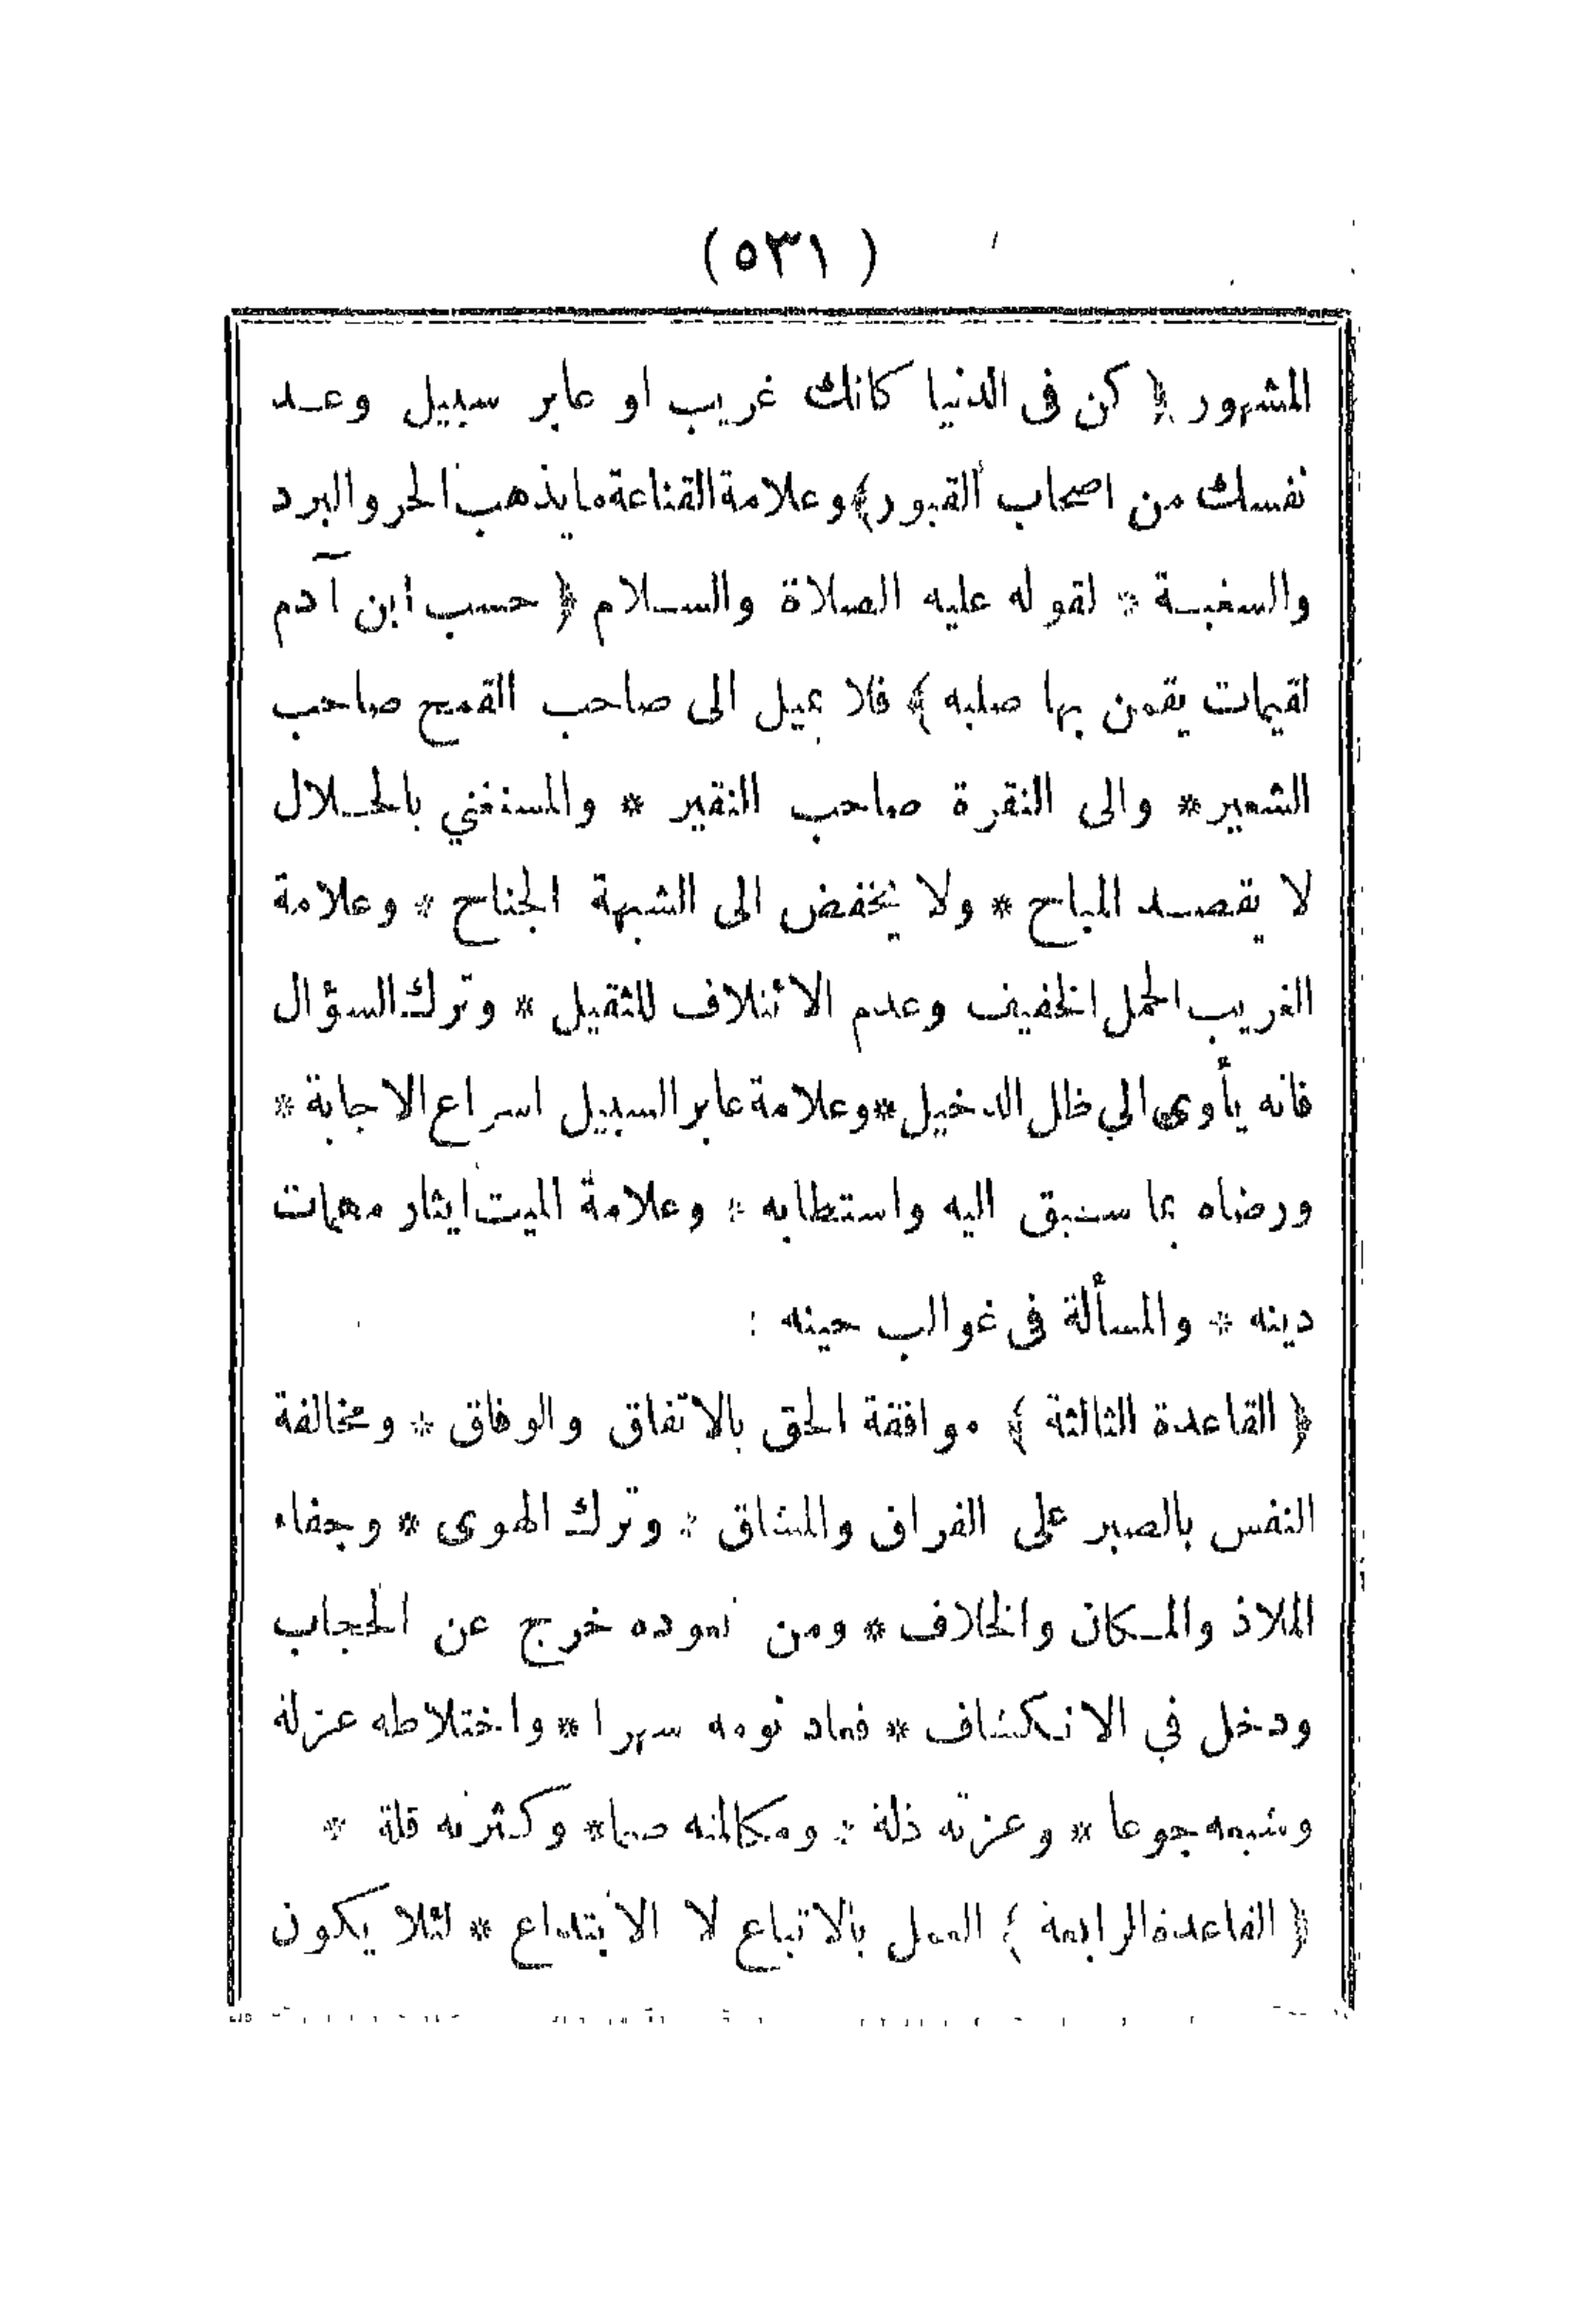 ( ٥٣١ )
المشهور ﴿ كن فى الدنيا كانك غريب او عابر سبيل وعد
نفسك من اصحاب القبور ﴾ وعلامة القناعة ما يذهب الحر والبرد
والسغبة * لقوله عليه الصلاة والسلام ﴿ حسب ابن آدم
لقيمات يقمن بها صلبه ﴾ فلا يميل الى صاحب القمح صاحب
الشعير * والى النقرة صاحب النقير * والمستغني بالحلال
لا يقصد المباح * ولا يخفض الى الشبهة الجناح * وعلامة
الغريب الحمل الخفيف وعدم الائتلاف للثقيل * وترك السؤال
فانه يأوى الي ظل الدخيل * وعلامة عابر السبيل اسراع الاجابة *
ورضاه بما سبق اليه واستطابه * وعلامة الميت ايثار مهمات
دينه * والمسألة فى غوالب حينه :
﴿ القاعدة الثالثة ﴾ موافقة الحق بالاتفاق والوفاق * ومخالفة
النفس بالصبر على الفراق والمشاق * وترك الهوى * وجفاء
الملاذ والمكان والخلاف * ومن تعوده خرج عن الحجاب
ودخل في الانكشاف * فعاد نومه سهرا * واختلاطه عزلة
وشبعه جوعا * وعزته ذلة * ومكالمته صمتا * وكثرته قلة *
﴿ القاعدة الرابعة ﴾ العمل بالاتباع لا الابتداع * لئلا يكون